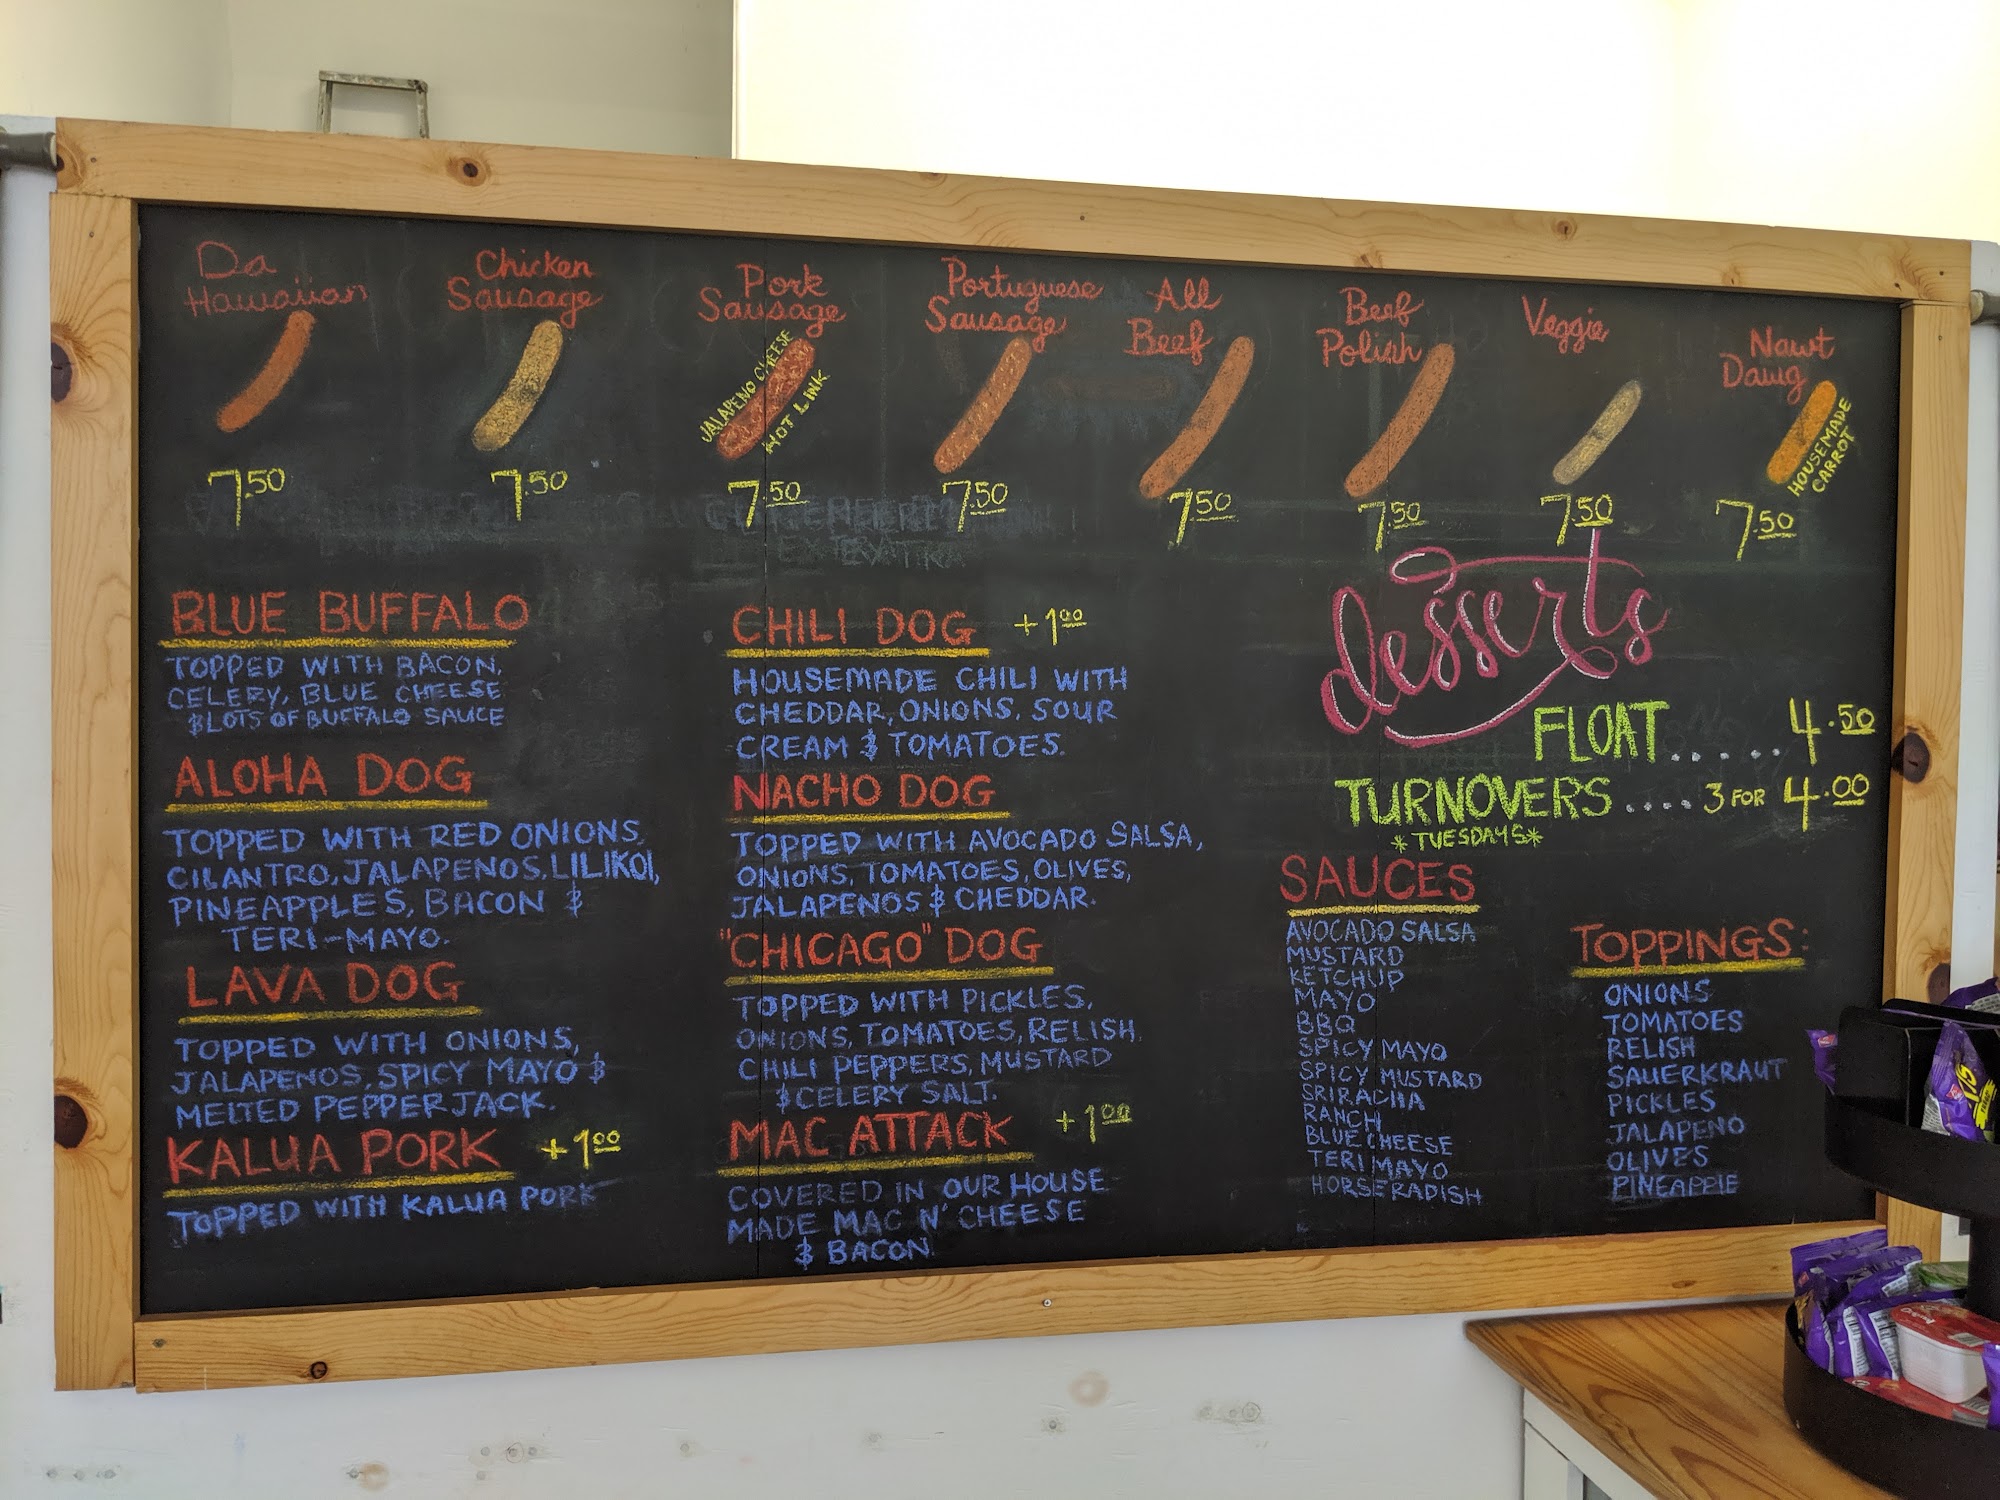 Da
Hawaiian
7.50
Chicken
Sausage
7.50
Pork
Sausage
JALAPENO CHEESE
HOT LINK
7.50
Portuguese
Sausage
7.50
All
Beef
7.50
Beef
Polish
7.50
Veggie
7.50
Nawt
Dawg
HOUSEMADE
CARROT
7.50
BLUE BUFFALO
TOPPED WITH BACON,
CELERY, BLUE CHEESE
& LOTS OF BUFFALO SAUCE
ALOHA DOG
TOPPED WITH RED ONIONS,
CILANTRO, JALAPENOS, LILIKOI,
PINEAPPLES, BACON &
TERI-MAYO.
LAVA DOG
TOPPED WITH ONIONS,
JALAPENOS, SPICY MAYO &
MELTED PEPPERJACK.
KALUA PORK +1.00
TOPPED WITH KALUA PORK
CHILI DOG +1.00
HOUSEMADE CHILI WITH
CHEDDAR, ONIONS, SOUR
CREAM & TOMATOES.
NACHO DOG
TOPPED WITH AVOCADO SALSA,
ONIONS, TOMATOES, OLIVES,
JALAPENOS & CHEDDAR.
"CHICAGO" DOG
TOPPED WITH PICKLES,
ONIONS, TOMATOES, RELISH,
CHILI PEPPERS, MUSTARD
& CELERY SALT.
MAC ATTACK +1.00
COVERED IN OUR HOUSE
MADE MAC N' CHEESE
& BACON.
desserts
FLOAT...... 4.50
TURNOVERS .... 3 FOR 4.00
*TUESDAYS*
SAUCES
AVOCADO SALSA
MUSTARD
KETCHUP
MAYO
BBQ
SPICY MAYO
SPICY MUSTARD
SRIRACHA
RANCH
BLUE CHEESE
TERI MAYO
HORSERADISH
TOPPINGS:
ONIONS
TOMATOES
RELISH
SAUERKRAUT
PICKLES
JALAPENO
OLIVES
PINEAPPLE